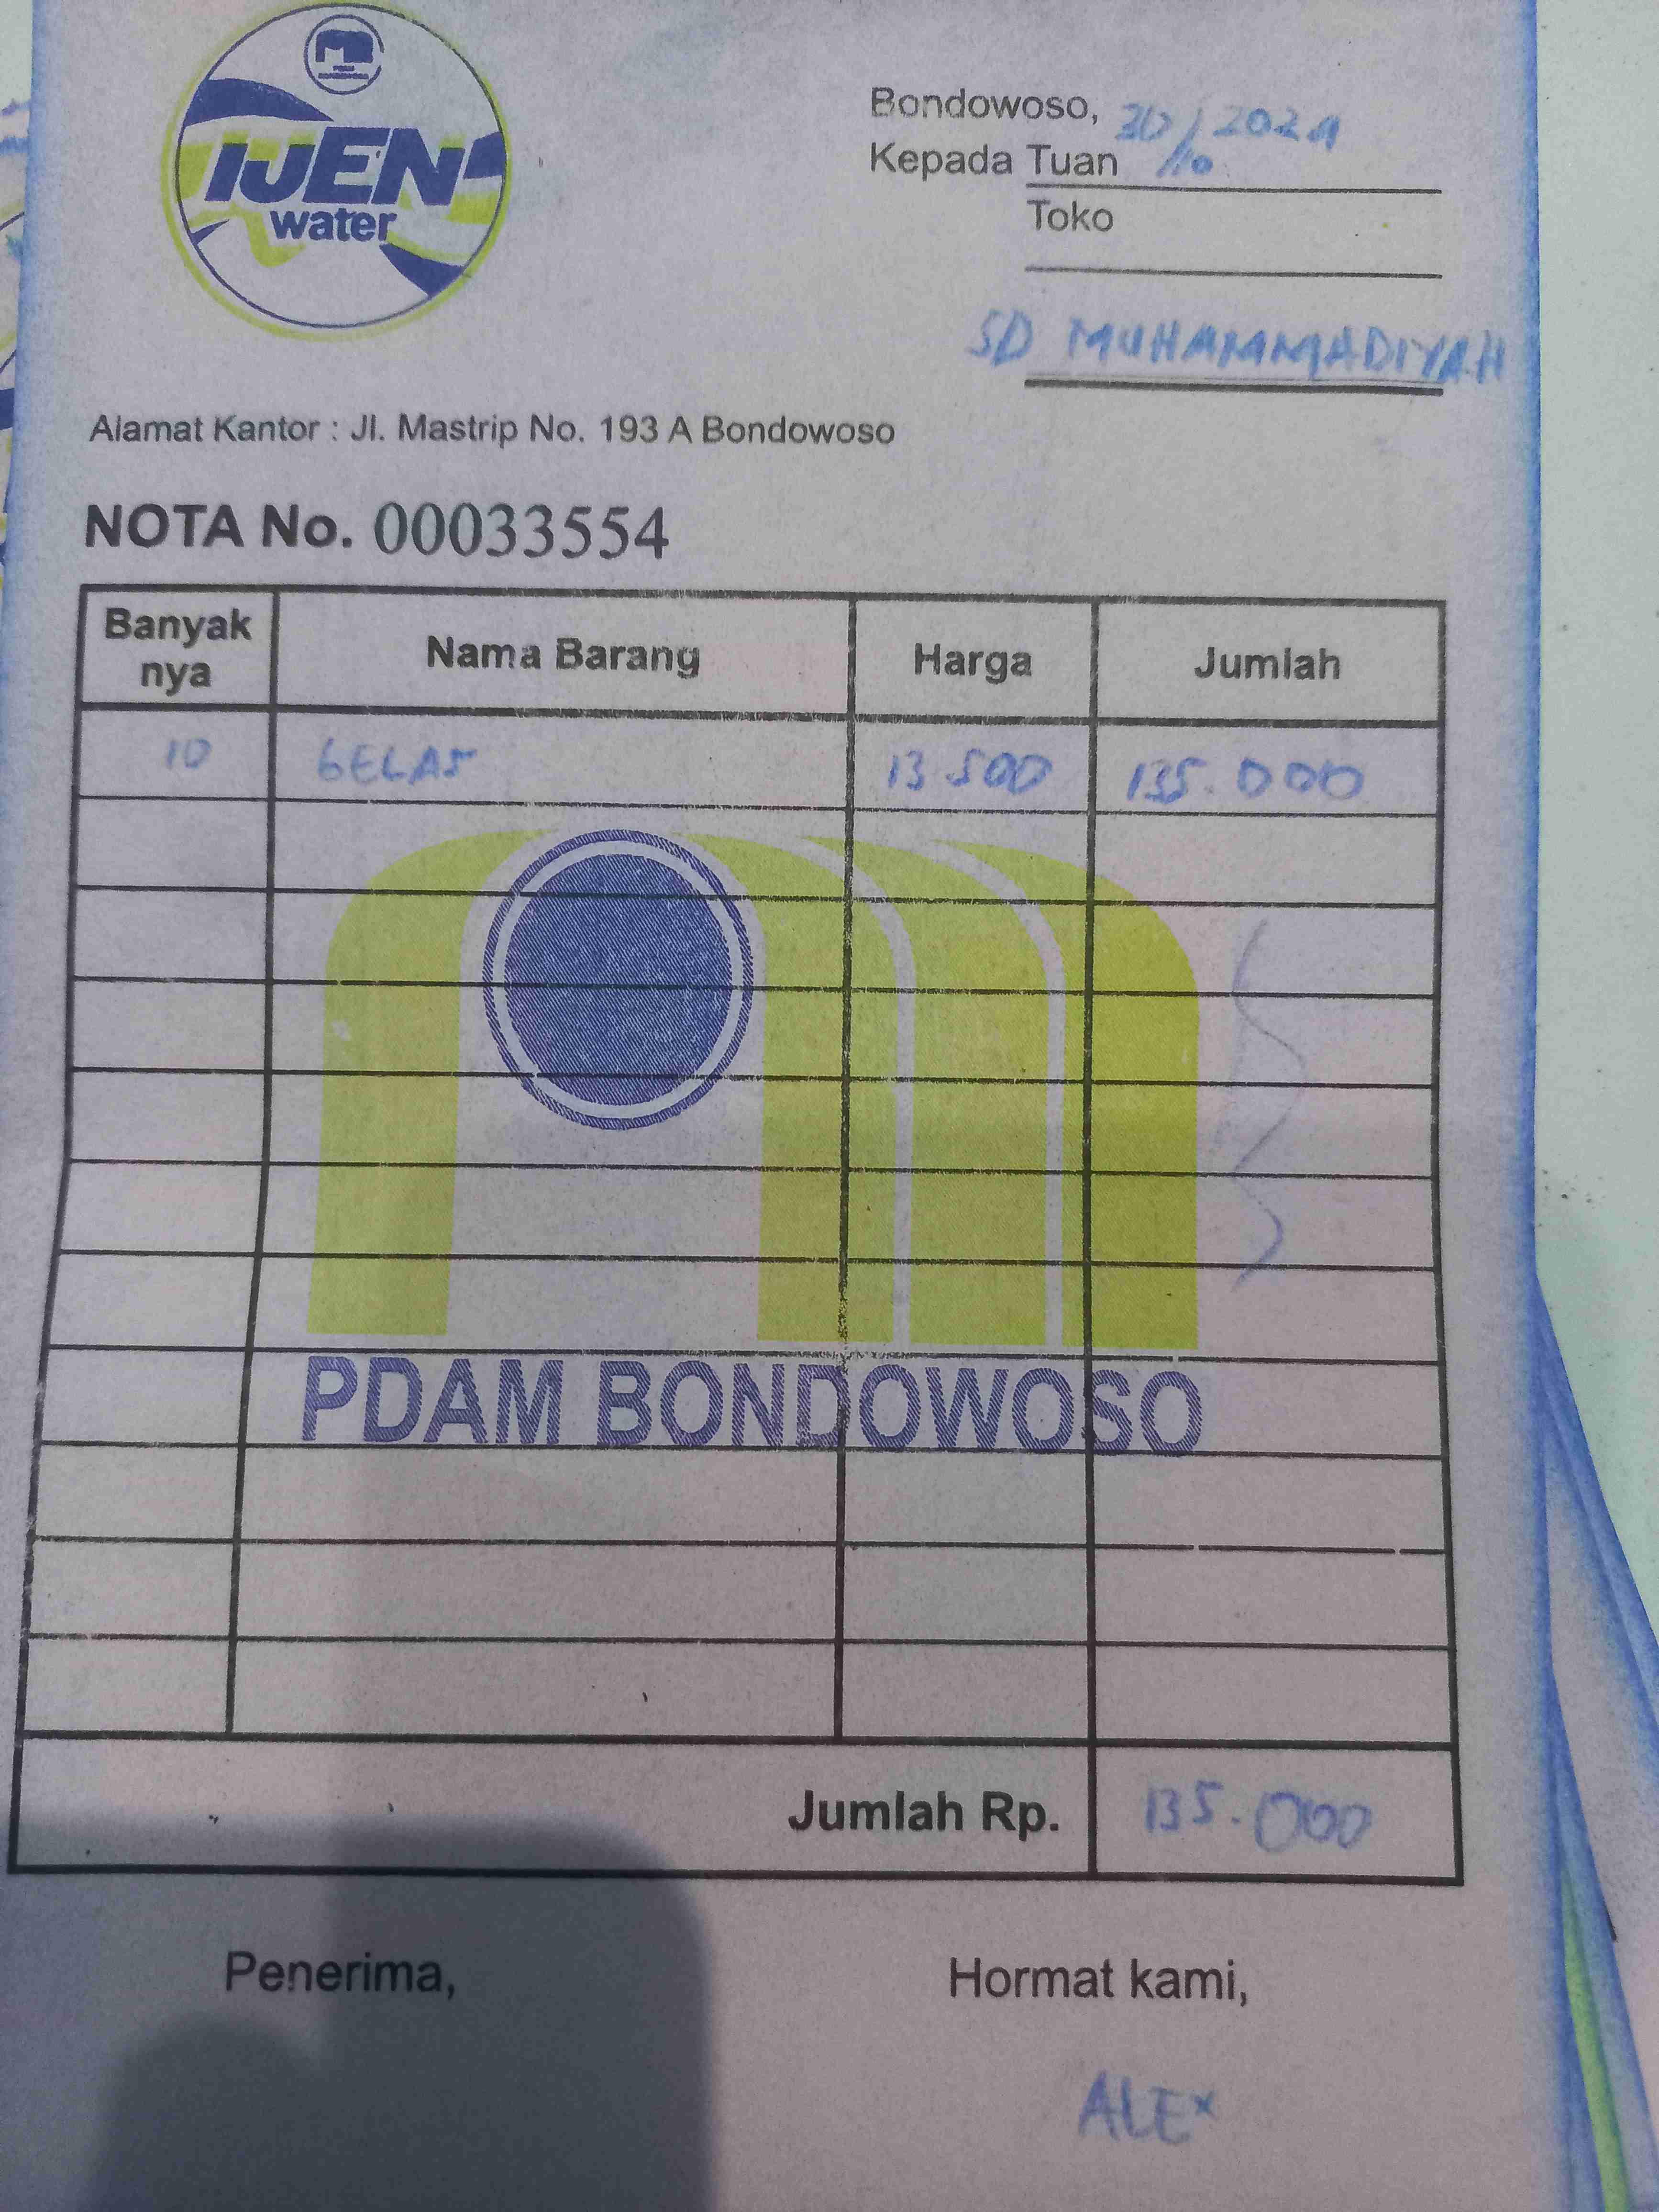 IJEN
water
Bondowoso, 30/10 2024
Kepada Tuan
Toko
SD MUHAMMADIYAH
Alamat Kantor : Jl. Mastrip No. 193 A Bondowoso
NOTA No. 00033554
Banyak nya Nama Barang Harga Jumlah
10 GELAS 13.500 135.000
PDAM BONDOWOSO
Jumlah Rp. 135.000
Penerima, Hormat kami,
ALEX